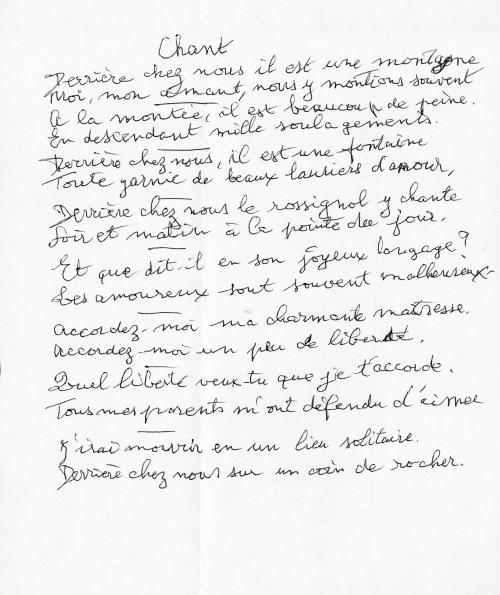 Chant
Derrière chez nous il est une montagne
Moi, mon amant, nous y montions souvent
A la montée, il est beaucoup de peine.
En descendant mille soulagements.
Derrière chez nous, il est une fontaine
Toute garnie de beaux lauriers d'amour,
Derrière chez nous le rossignol y chante
Soir et matin à la pointe du jour.
Et que dit-il en son joyeux langage ?
Les amoureux sont souvent malheureux
Accordez-moi ma charmante maîtresse.
Accordez-moi un peu de liberté.
Quel liberté veux-tu que je t'accorde.
Tous mes parents m'ont défendu d'aimer
J'irai mourrir en un lieu solitaire.
Derrière chez nous sur un coin de rocher.